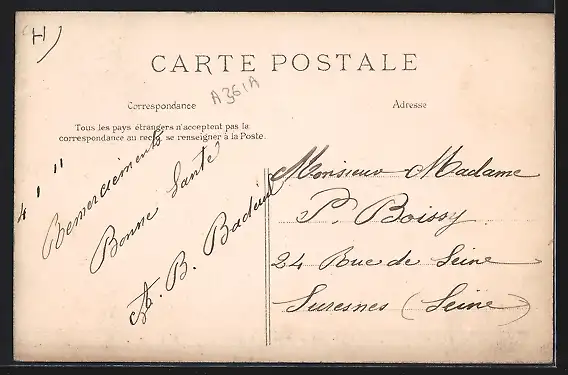 (H)
CARTE POSTALE
A361A
Correspondance
Adresse
Tous les pays étrangers n'acceptent pas la
correspondance au recto, se renseigner à la Poste.
4 1 11
Remerciements
Bonne Santé
A. B.
Monsieur Madame
P. Boissy
24 Rue de Seine
Suresnes (Seine)